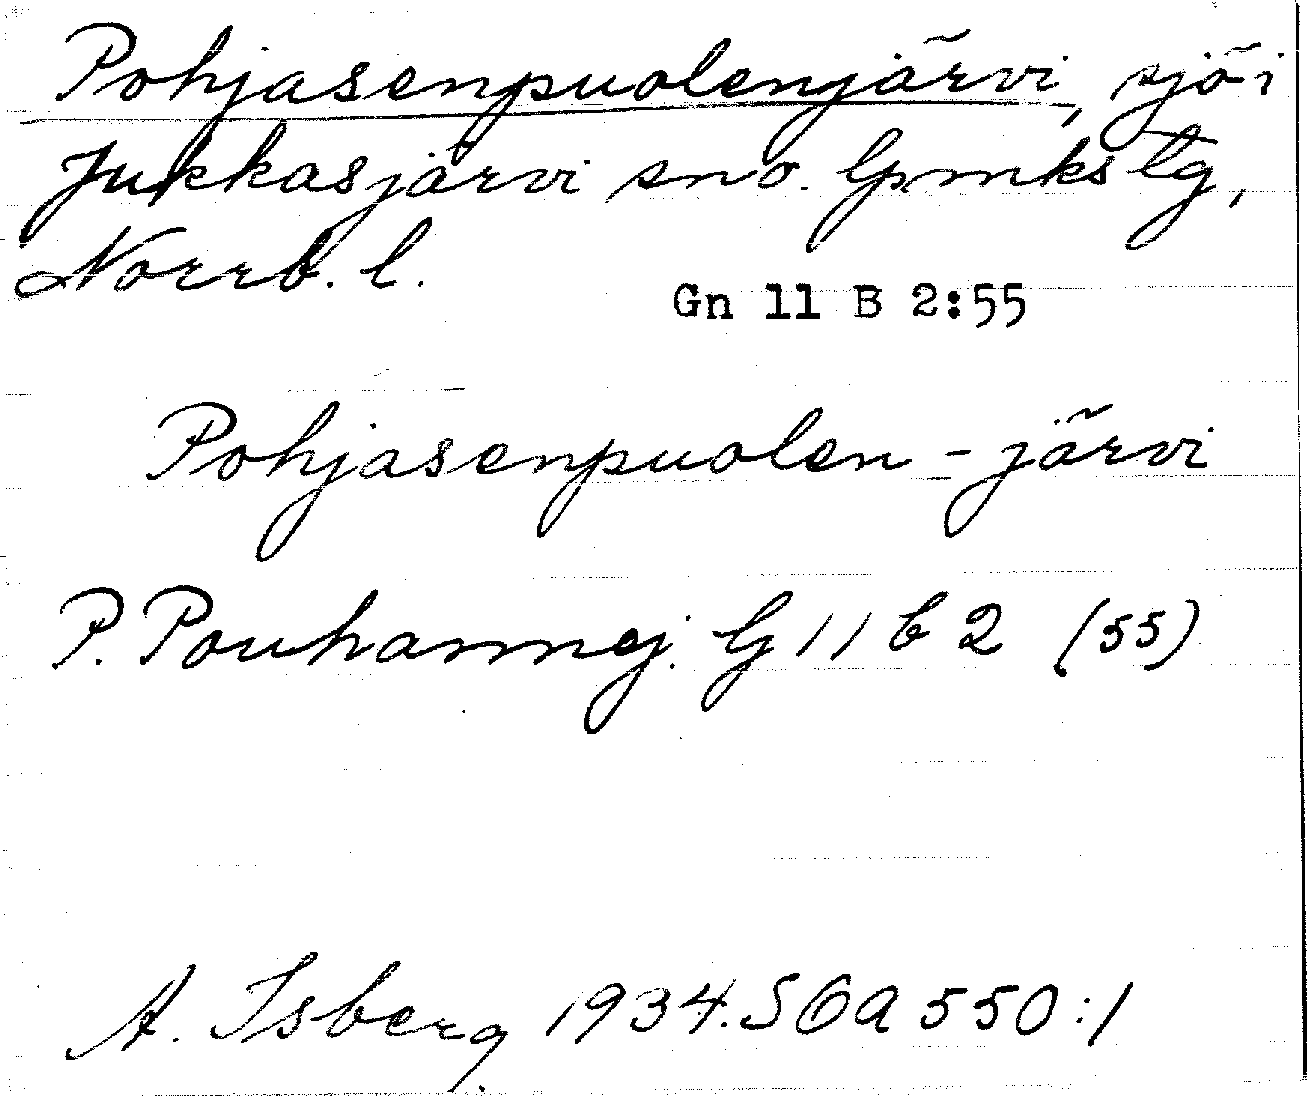 Pohjasenpuolenjärvi, sjö i
Jukkasjärvi sn o. lpmkstg,
Norrb. l.
Gn 11 B 2:55
Pohjasenpuolen-järvi
P. Pouhannej. G 11 b 2 (55)
A. Isberg 1934. SOA 550:1